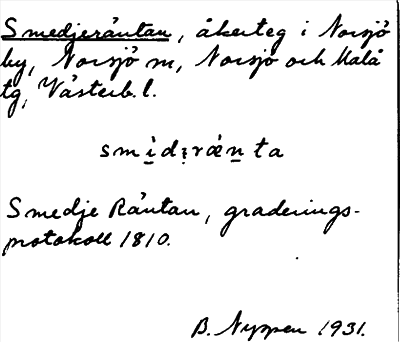 Smedjeråutan, åkerteg i Norsjö
by, Norsjö sn, Norsjö och Malå
tg, Västerb. l.
Smedje Råutan, graderings-
protokoll 1810.
B. Nyppen 1931.